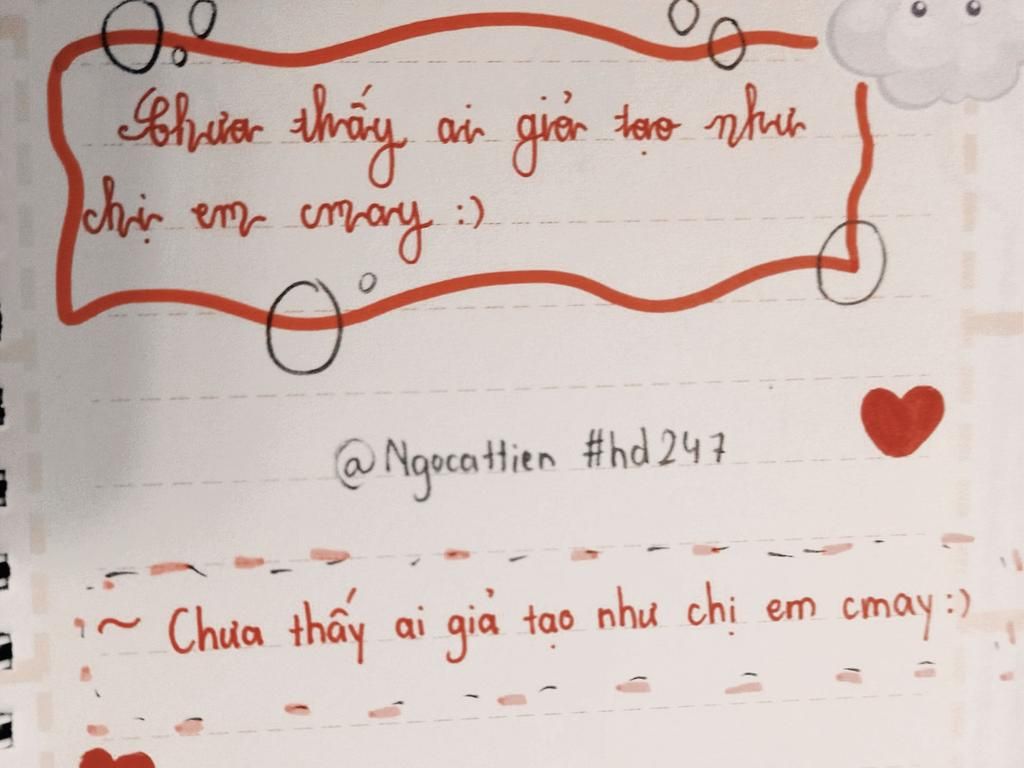 Chưa thấy ai giả tạo như
chị em cmay :)
@Ngocattien #hd247
~ Chưa thấy ai giả tạo như chị em cmay :)